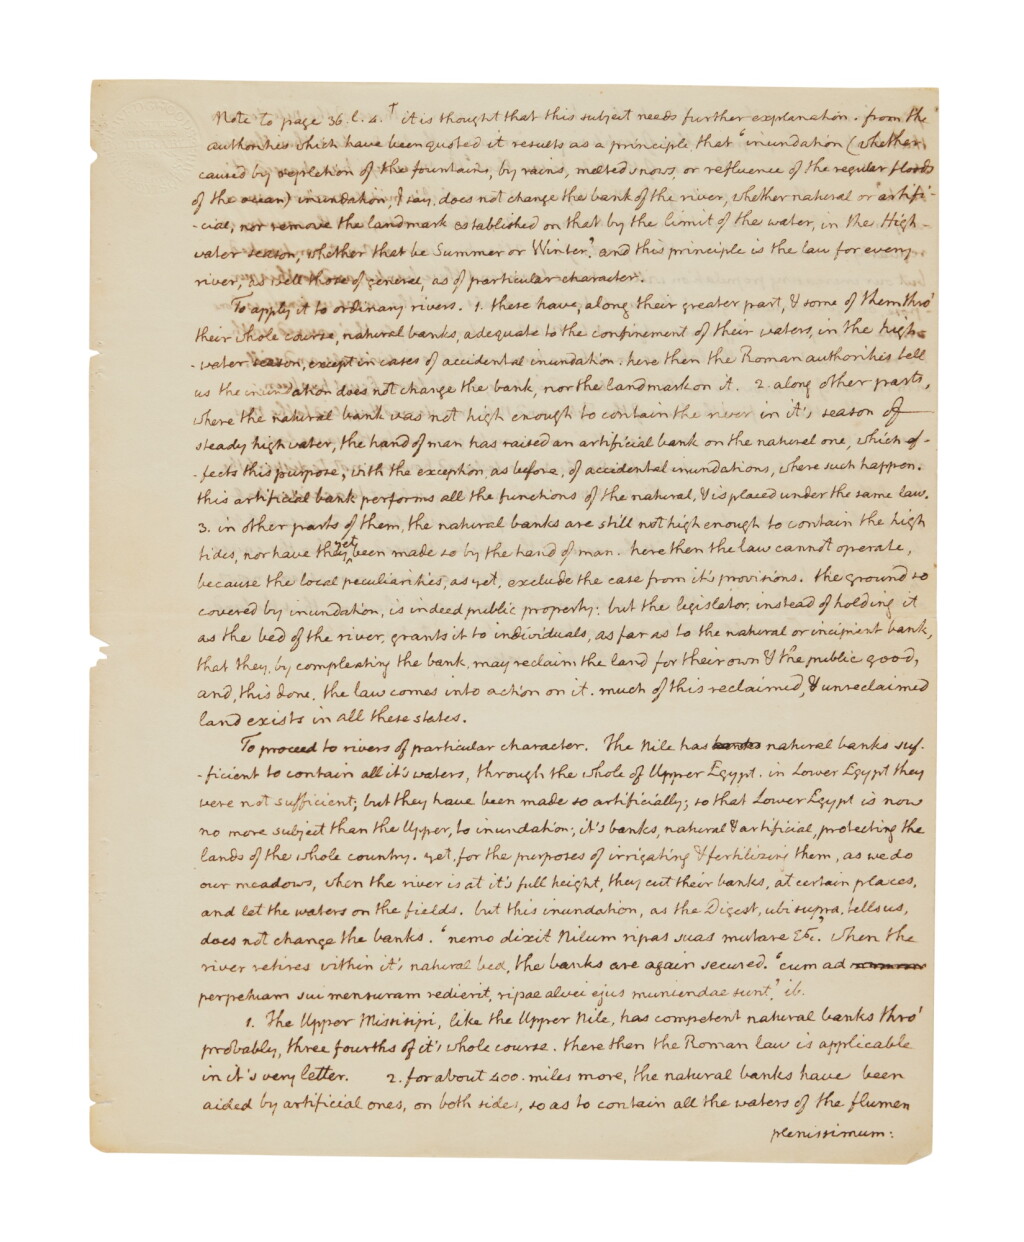 Note to page 36. l. 4. † it is thought that this subject needs further explanation. from the
authorities which have been quoted it results as a principle that 'inundation (whether
caused by repletion of the fountains, by rains, melted snows, or refluence of the regular floods
of the ocean) inundation, I say, does not change the bank of the river, whether natural or artifi-
-cial, nor remove the landmark established on that by the limit of the water, in the High-
water season, whether that be Summer or Winter.' and this principle is the law for every
river, as well those of general, as of particular character.
To apply it to ordinary rivers. 1. these have, along their greater part, & some of them thro'
their whole course, natural banks, adequate to the confinement of their waters, in the high-
-water season, except in cases of accidental inundation. here then the Roman authorities tell
us the inundation does not change the bank, nor the landmark on it. 2. along other parts,
where the natural bank was not high enough to contain the river in it's season of
steady high water, the hand of man has raised an artificial bank on the natural one, which ef-
-fects this purpose, with the exception, as before, of accidental inundations, where such happen.
this artificial bank performs all the functions of the natural, & is placed under the same law.
3. in other parts of them, the natural banks are still not high enough to contain the high
tides, nor have they yet been made so by the hand of man. here then the law cannot operate,
because the local peculiarities, as yet, exclude the case from it's provisions. the ground so
covered by inundation, is indeed public property: but the legislator, instead of holding it
as the bed of the river, grants it to individuals, as far as to the natural or incipient bank,
that they, by compleating the bank, may reclaim the land for their own & the public good,
and, this done, the law comes into action on it. much of this reclaimed, & unreclaimed
land exists in all these states.
To proceed to rivers of particular character. The Nile has banks natural banks suf-
-ficient to contain all it's waters, through the whole of Upper Egypt. in Lower Egypt they
were not sufficient; but they have been made so artificially; so that Lower Egypt is now
no more subject than the Upper, to inundation; it's banks, natural & artificial, protecting the
lands of the whole country. yet, for the purposes of irrigating & fertilizing them, as we do
our meadows, when the river is at it's full height, they cut their banks, at certain places,
and let the waters on the fields. but this inundation, as the Digest, ubi supra, tells us,
does not change the banks. 'nemo dixit Nilum ripas suas mutare &c.' when the
river retires within it's natural bed, the banks are again secured. 'cum ad
perpetuam sui mensuram redierit, ripae alvei ejus muniendae sunt.' ib.
1. The Upper Missisipi, like the Upper Nile, has competent natural banks thro'
probably, three fourths of it's whole course. there then the Roman law is applicable
in it's very letter. 2. for about 400. miles more, the natural banks have been
aided by artificial ones, on both sides, so as to contain all the waters of the flumen
plenissimum: